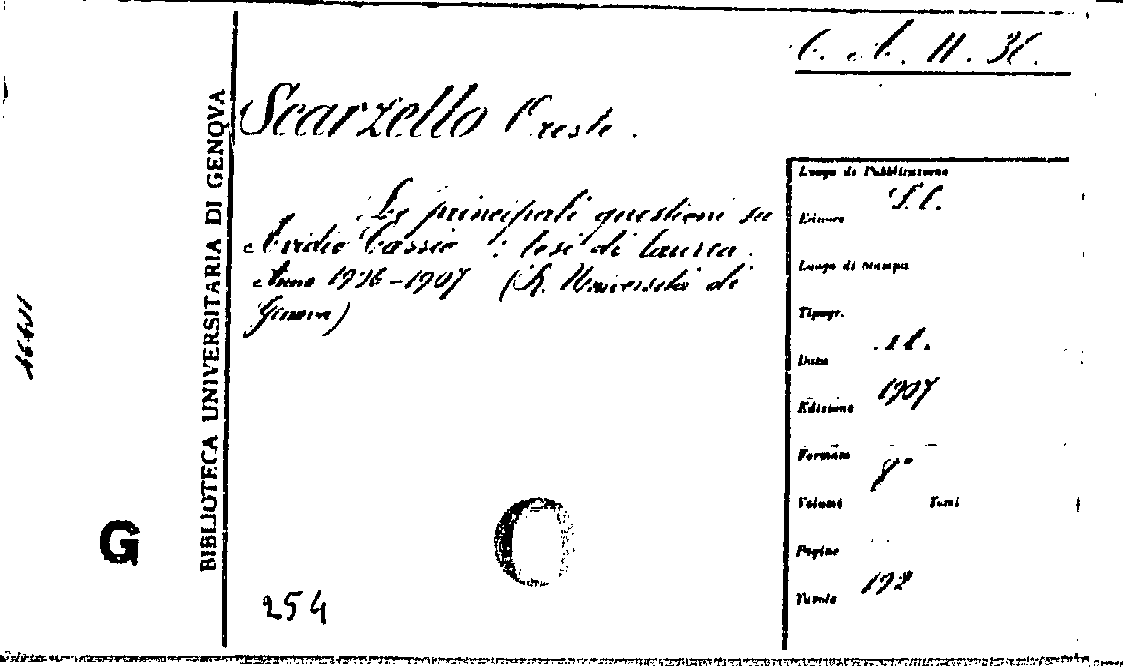 C. A. 11. 31.
Scarzello Oreste.
Le principali questioni su
Avidio Cassio : tesi di laurea.
Anno 1906-1907 (R. Università di
Genova)
BIBLIOTECA UNIVERSITARIA DI GENOVA
G
254
Luogo di Pubblicazione
S.l.
Editore
Luogo di stampa
Tipogr.
s.t.
Data
1907
Edizione
Formato
8°
Volumi Tomi
Pagine
192
Tavole